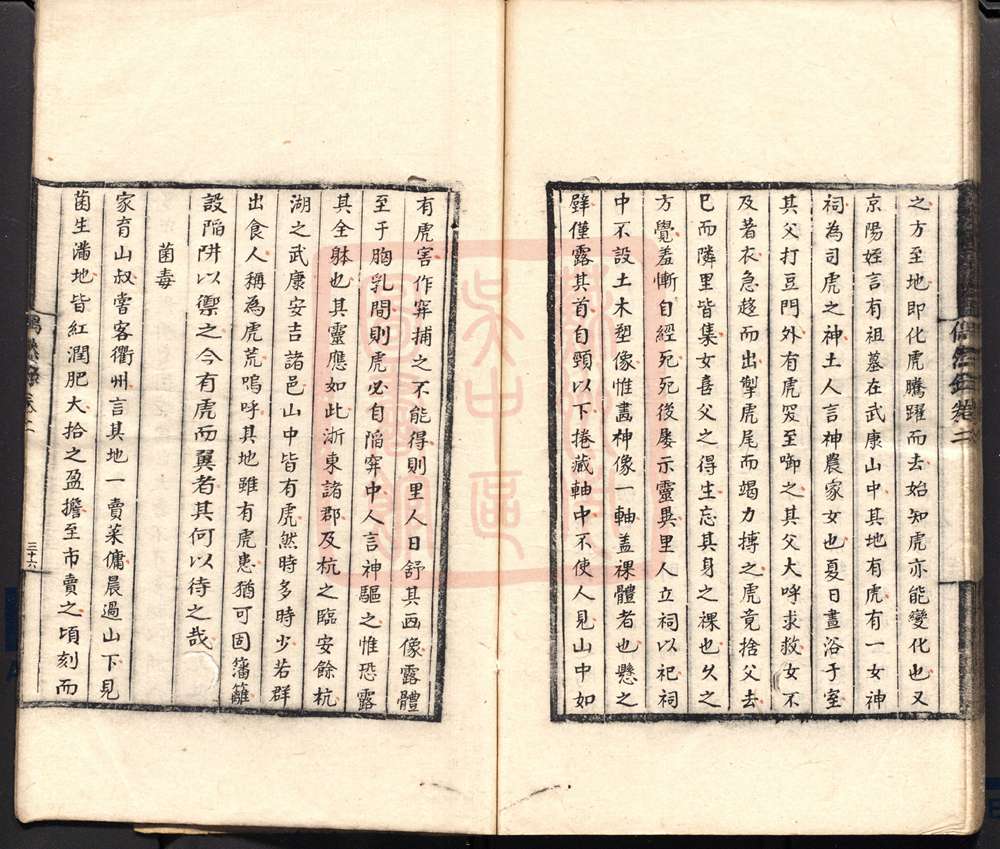 之方至地即化虎騰躍而去始知虎亦能變化也又
京陽姪言有祖墓在武康山中其地有虎有一女神
祠為司虎之神土人言神農家女也夏日晝浴于室
其父打豆門外有虎突至啣之其父大呼求救女不
及著衣急趍而出掣虎尾而竭力搏之虎竟捨父去
已而隣里皆集女喜父之得生忘其身之裸也久之
方覺羞慚自經死死後屡示靈異里人立祠以祀祠
中不設土木塑像惟畫神像一軸盖裸體者也懸之
壁僅露其首自頸以下捲藏軸中不使人見山中如
有虎害作穽捕之不能得則里人日舒其画像露體
至于胸乳間則虎必自陷穽中人言神驅之惟恐露
其全躰也其靈應如此浙東諸郡及杭之臨安餘杭
湖之武康安吉諸邑山中皆有虎然時多時少若群
出食人稱為虎荒嗚呼其地雖有虎患猶可固籓籬
設陷阱以禦之今有虎而翼者其何以待之哉
菌毒
家育山叔嘗客衢州言其地一賣菜傭晨過山下見
菌生满地皆紅潤肥大拾之盈擔至市賣之頃刻而
三十六